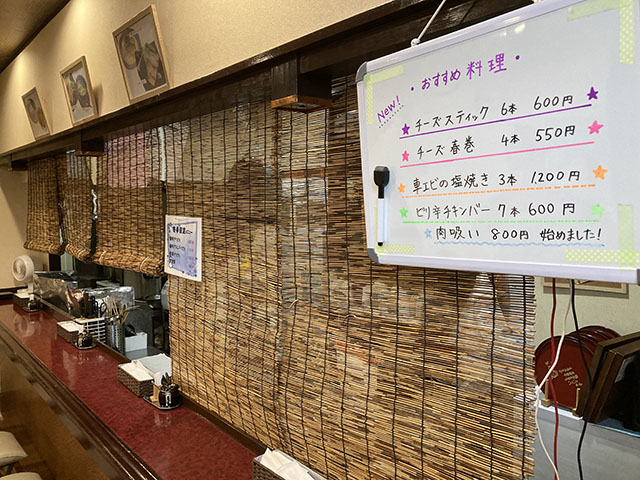 ・おすすめ料理・
New!
チーズスティック 6本 600円
チーズ春巻 4本 550円
車エビの塩焼き 3本 1200円
ピリ辛チキンバー 7本 600円
肉吸い 800円 始めました!